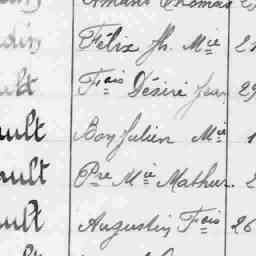 Amand Thomas
din Félix Jh. Mie 2
ult Fois Désiré Jean 29
ault Bon Julien Mie 1
ault Pre Mie Mathur. 2
ault Augustin Fois 26